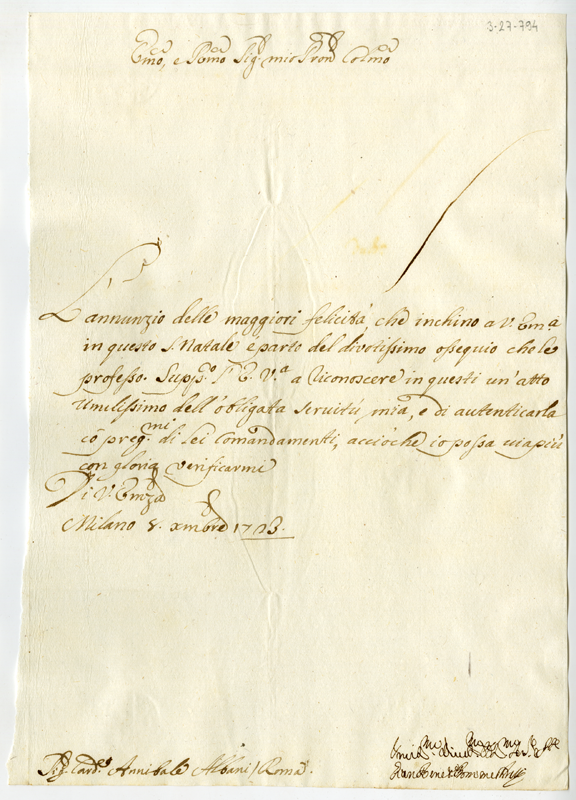 3-27-794
Emo, e Rmo Sig.r mio Pron Colmo
L'annunzio delle maggiori felicità, che inchino a V. Em.a
in questo S. Natale è parto del divotissimo ossequio che le
professo. Supp.o l'E. V.a a riconoscere in questi un'atto
umilissimo dell'obligata servitù mia, e di autenticarla
cō preg.mi di lei comandamenti, acciòche io possa viapiù
con gloria verificarmi
Di V. Emza
Milano 8. Xmbre 1723.
Sig.r Card.e Annibale Albani / Roma.